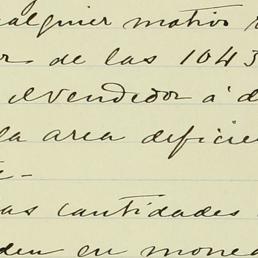 cualquier motivo
de las 1043
el vendedor á d
la area deficie
te.-
as cantidades
den en mone